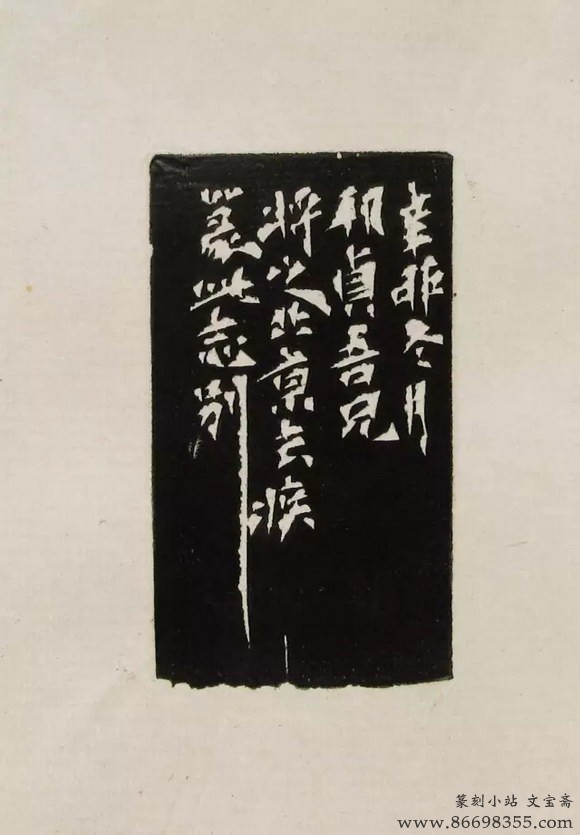 辛卯冬月
貞吾兄
將之北京去疾
篆此志別
篆刻小站 文宝斋
www.86698355.com